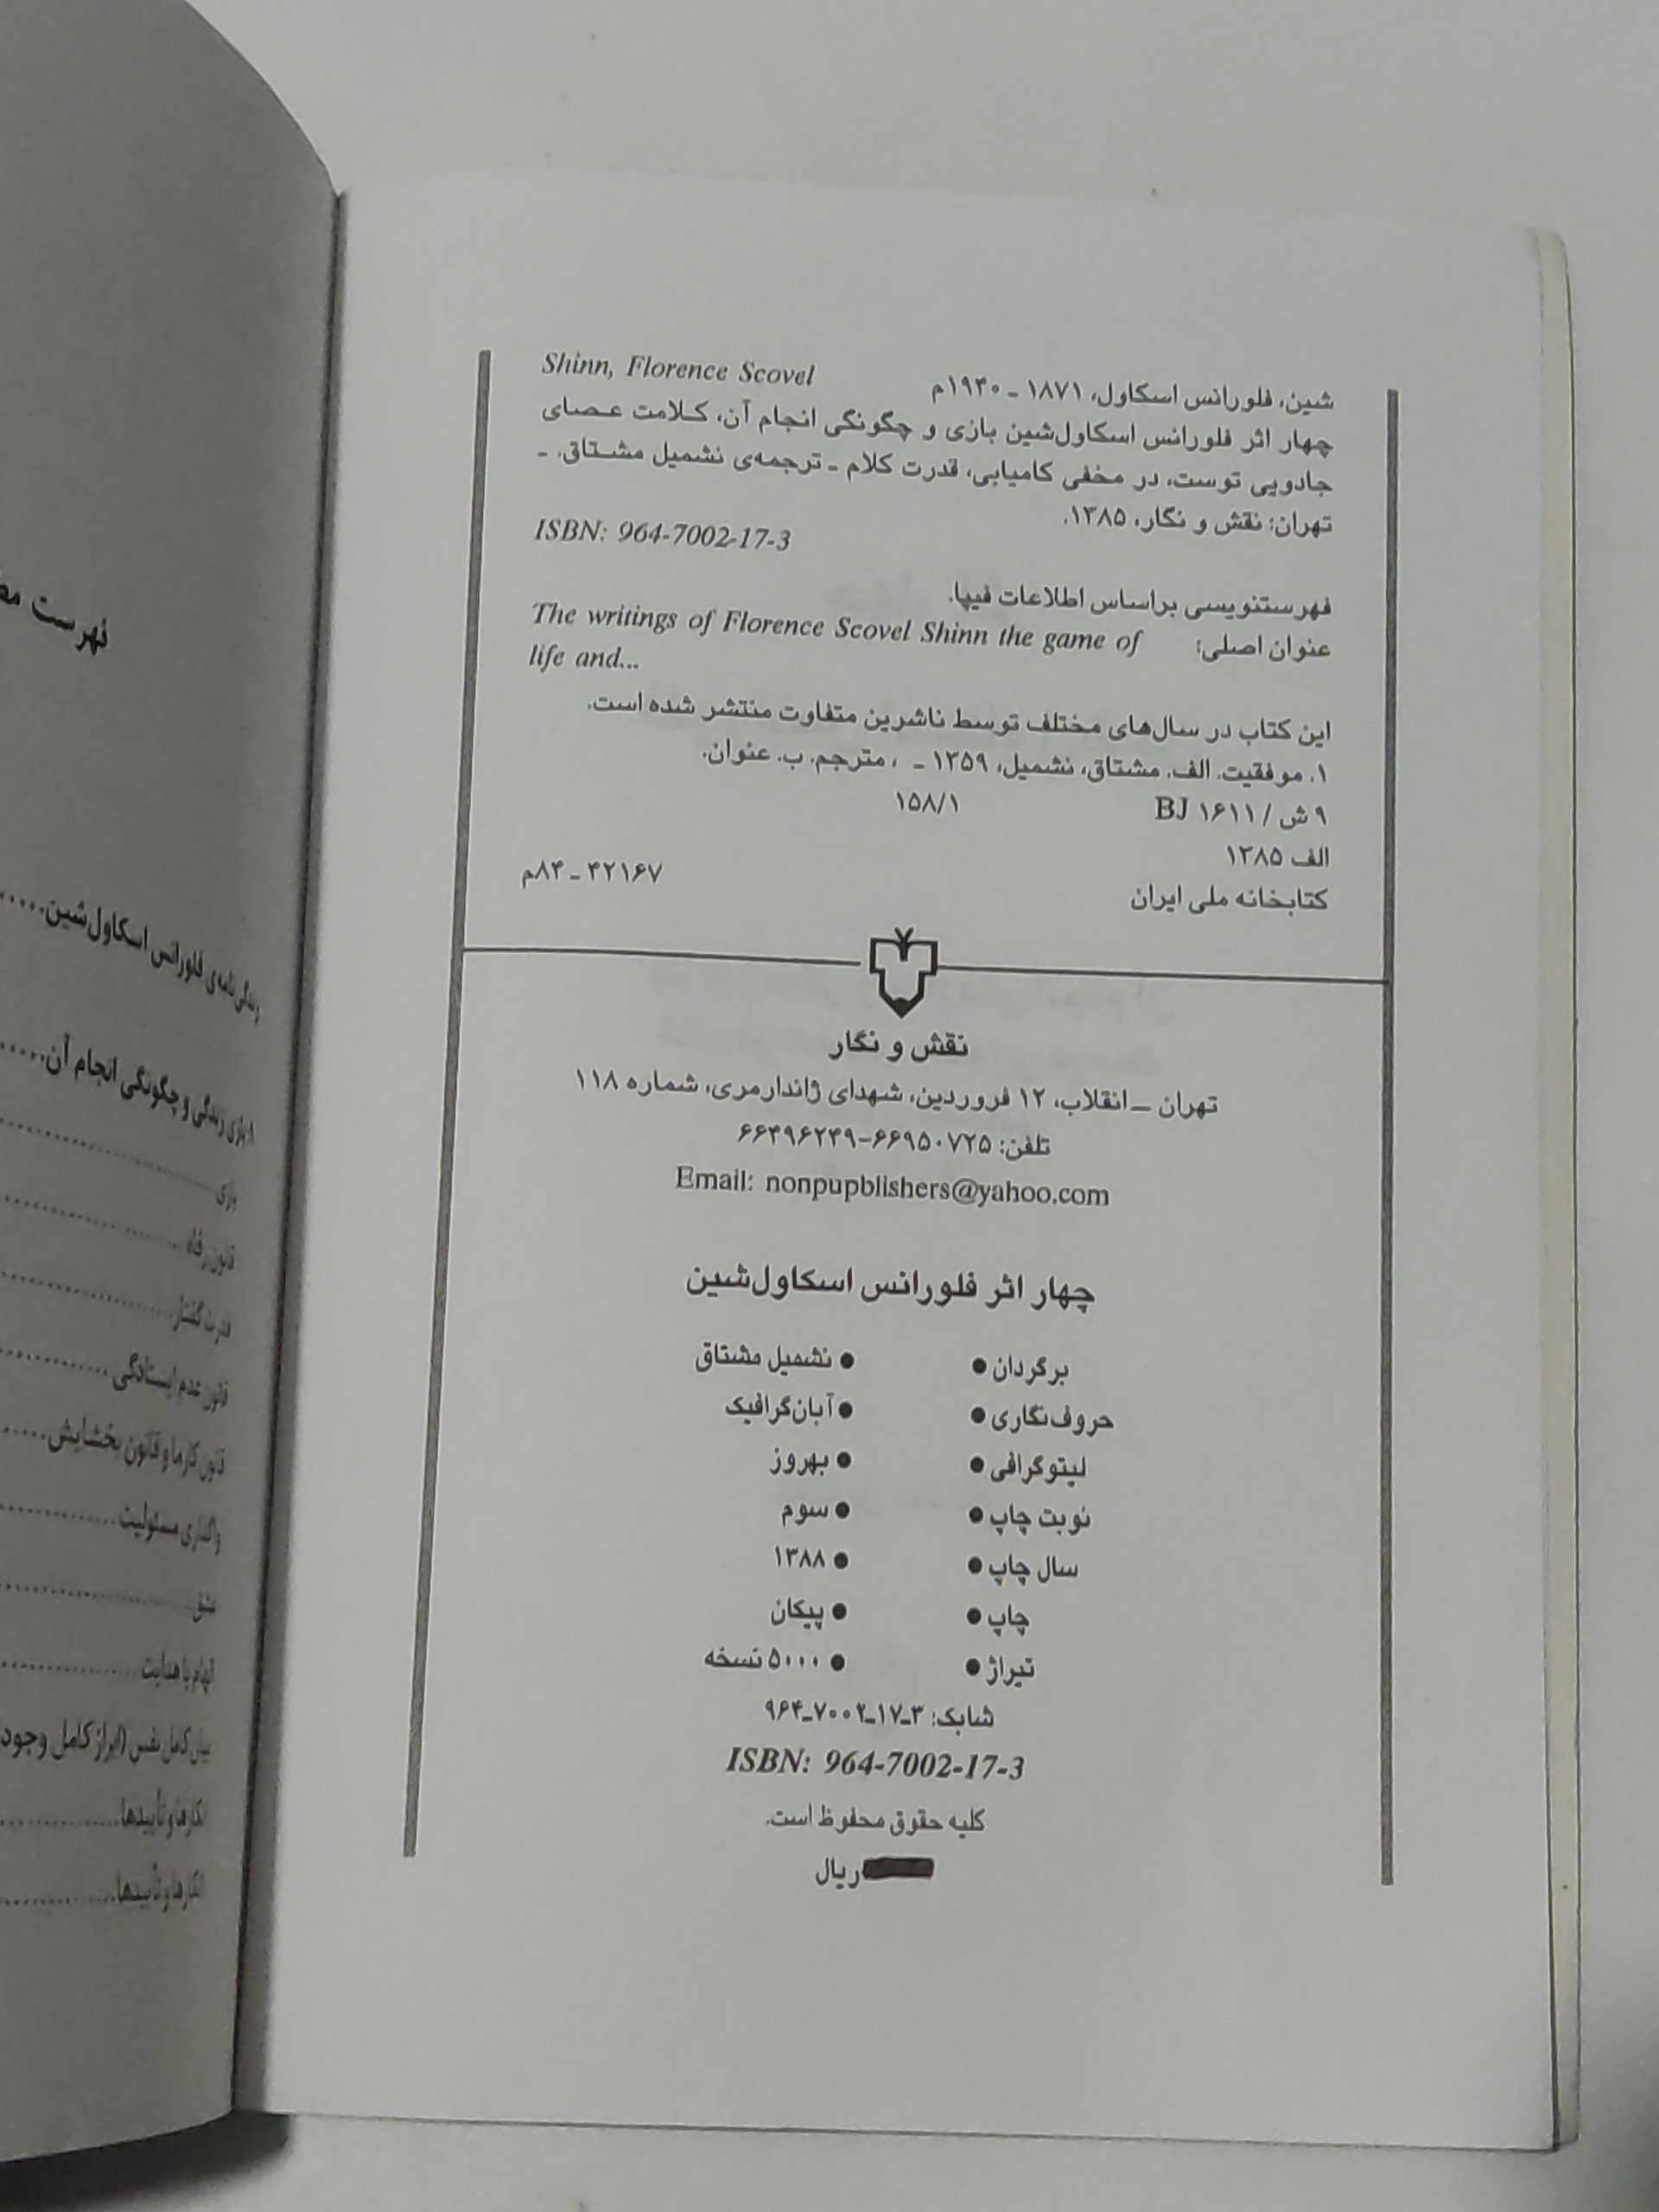 شین، فلورانس اسکاول، ۱۸۷۱ ـ ۱۹۴۰م Shinn, Florence Scovel
چهار اثر فلورانس اسکاول‌شین بازی و چگونگی انجام آن، کلامت عصای
جادویی توست، در مخفی کامیابی، قدرت کلام ـ ترجمه‌ی نشمیل مشتاق. ـ
تهران: نقش و نگار، ۱۳۸۵.
ISBN: 964-7002-17-3
فهرستنویسی براساس اطلاعات فیپا.
عنوان اصلی: The writings of Florence Scovel Shinn the game of
life and...
این کتاب در سال‌های مختلف توسط ناشرین متفاوت منتشر شده است.
۱. موفقیت. الف. مشتاق، نشمیل، ۱۳۵۹ ـ ، مترجم. ب. عنوان.
۹ ش / ۱۶۱۱ BJ ۱۵۸/۱
الف ۱۳۸۵
کتابخانه ملی ایران ۴۲۱۶۷ ـ ۸۴م
نقش و نگار
تهران ـ انقلاب، ۱۲ فروردین، شهدای ژاندارمری، شماره ۱۱۸
تلفن: ۶۶۹۵۰۷۲۵-۶۶۴۹۶۲۴۹
Email: nonpupblishers@yahoo.com
چهار اثر فلورانس اسکاول‌شین
برگردان ● ● نشمیل مشتاق
حروف‌نگاری ● ● آبان‌گرافیک
لیتوگرافی ● ● بهروز
نوبت چاپ ● ● سوم
سال چاپ ● ● ۱۳۸۸
چاپ ● ● پیکان
تیراژ ● ● ۵۰۰۰ نسخه
شابک: ۳ـ۱۷ـ۷۰۰۲ـ۹۶۴
ISBN: 964-7002-17-3
کلیه حقوق محفوظ است.
ریال
فهرست
زندگی‌نامه‌ی فلورانس اسکاول‌شین
۱. بازی زندگی و چگونگی انجام آن
بازی
قانون رفاه
قدرت گفتار
قانون عدم ایستادگی
قانون کارما و قانون بخشایش
واگذاری مسئولیت
عشق
الهام یا هدایت
بیان کامل نفس (ابراز کامل وجود
انکارها و تأییدها
انکارها و تأییدها